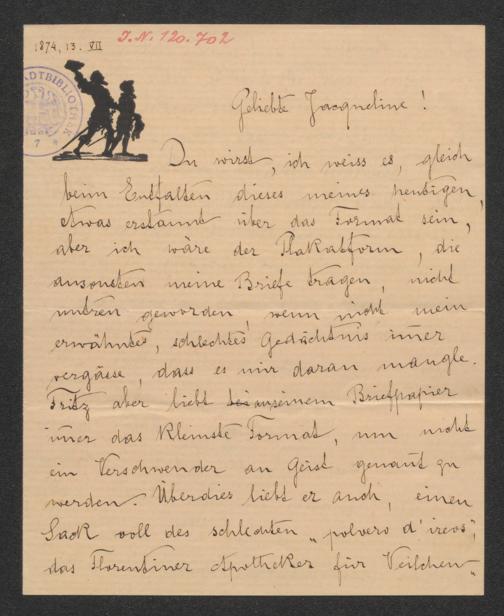 1874, 13. VII
I.N. 120.702
STADTBIBLIOTHEK
7
Geliebte Jacqueline!
Du wirst, ich weiss es, gleich
beim Entfalten dieses meines heutigen,
etwas erstaunt über das Format sein,
aber ich wäre der Plakatform, die
ansonsten meine Briefe tragen, nicht
untreu geworden, wenn nicht mein
erwähntes, schlechtes Gedächtnis im̅er
vergässe, dass es mir daran mangle.
Fritz aber liebt seinem Briefpapier
im̅er das kleinste Format, um nicht
ein Verschwender an Geist genan̅t zu
werden. Überdies liebt er auch, einen
Sack voll des schlechten „polvere d'ireos",
das Florentiner Apotheker für Veilchen-